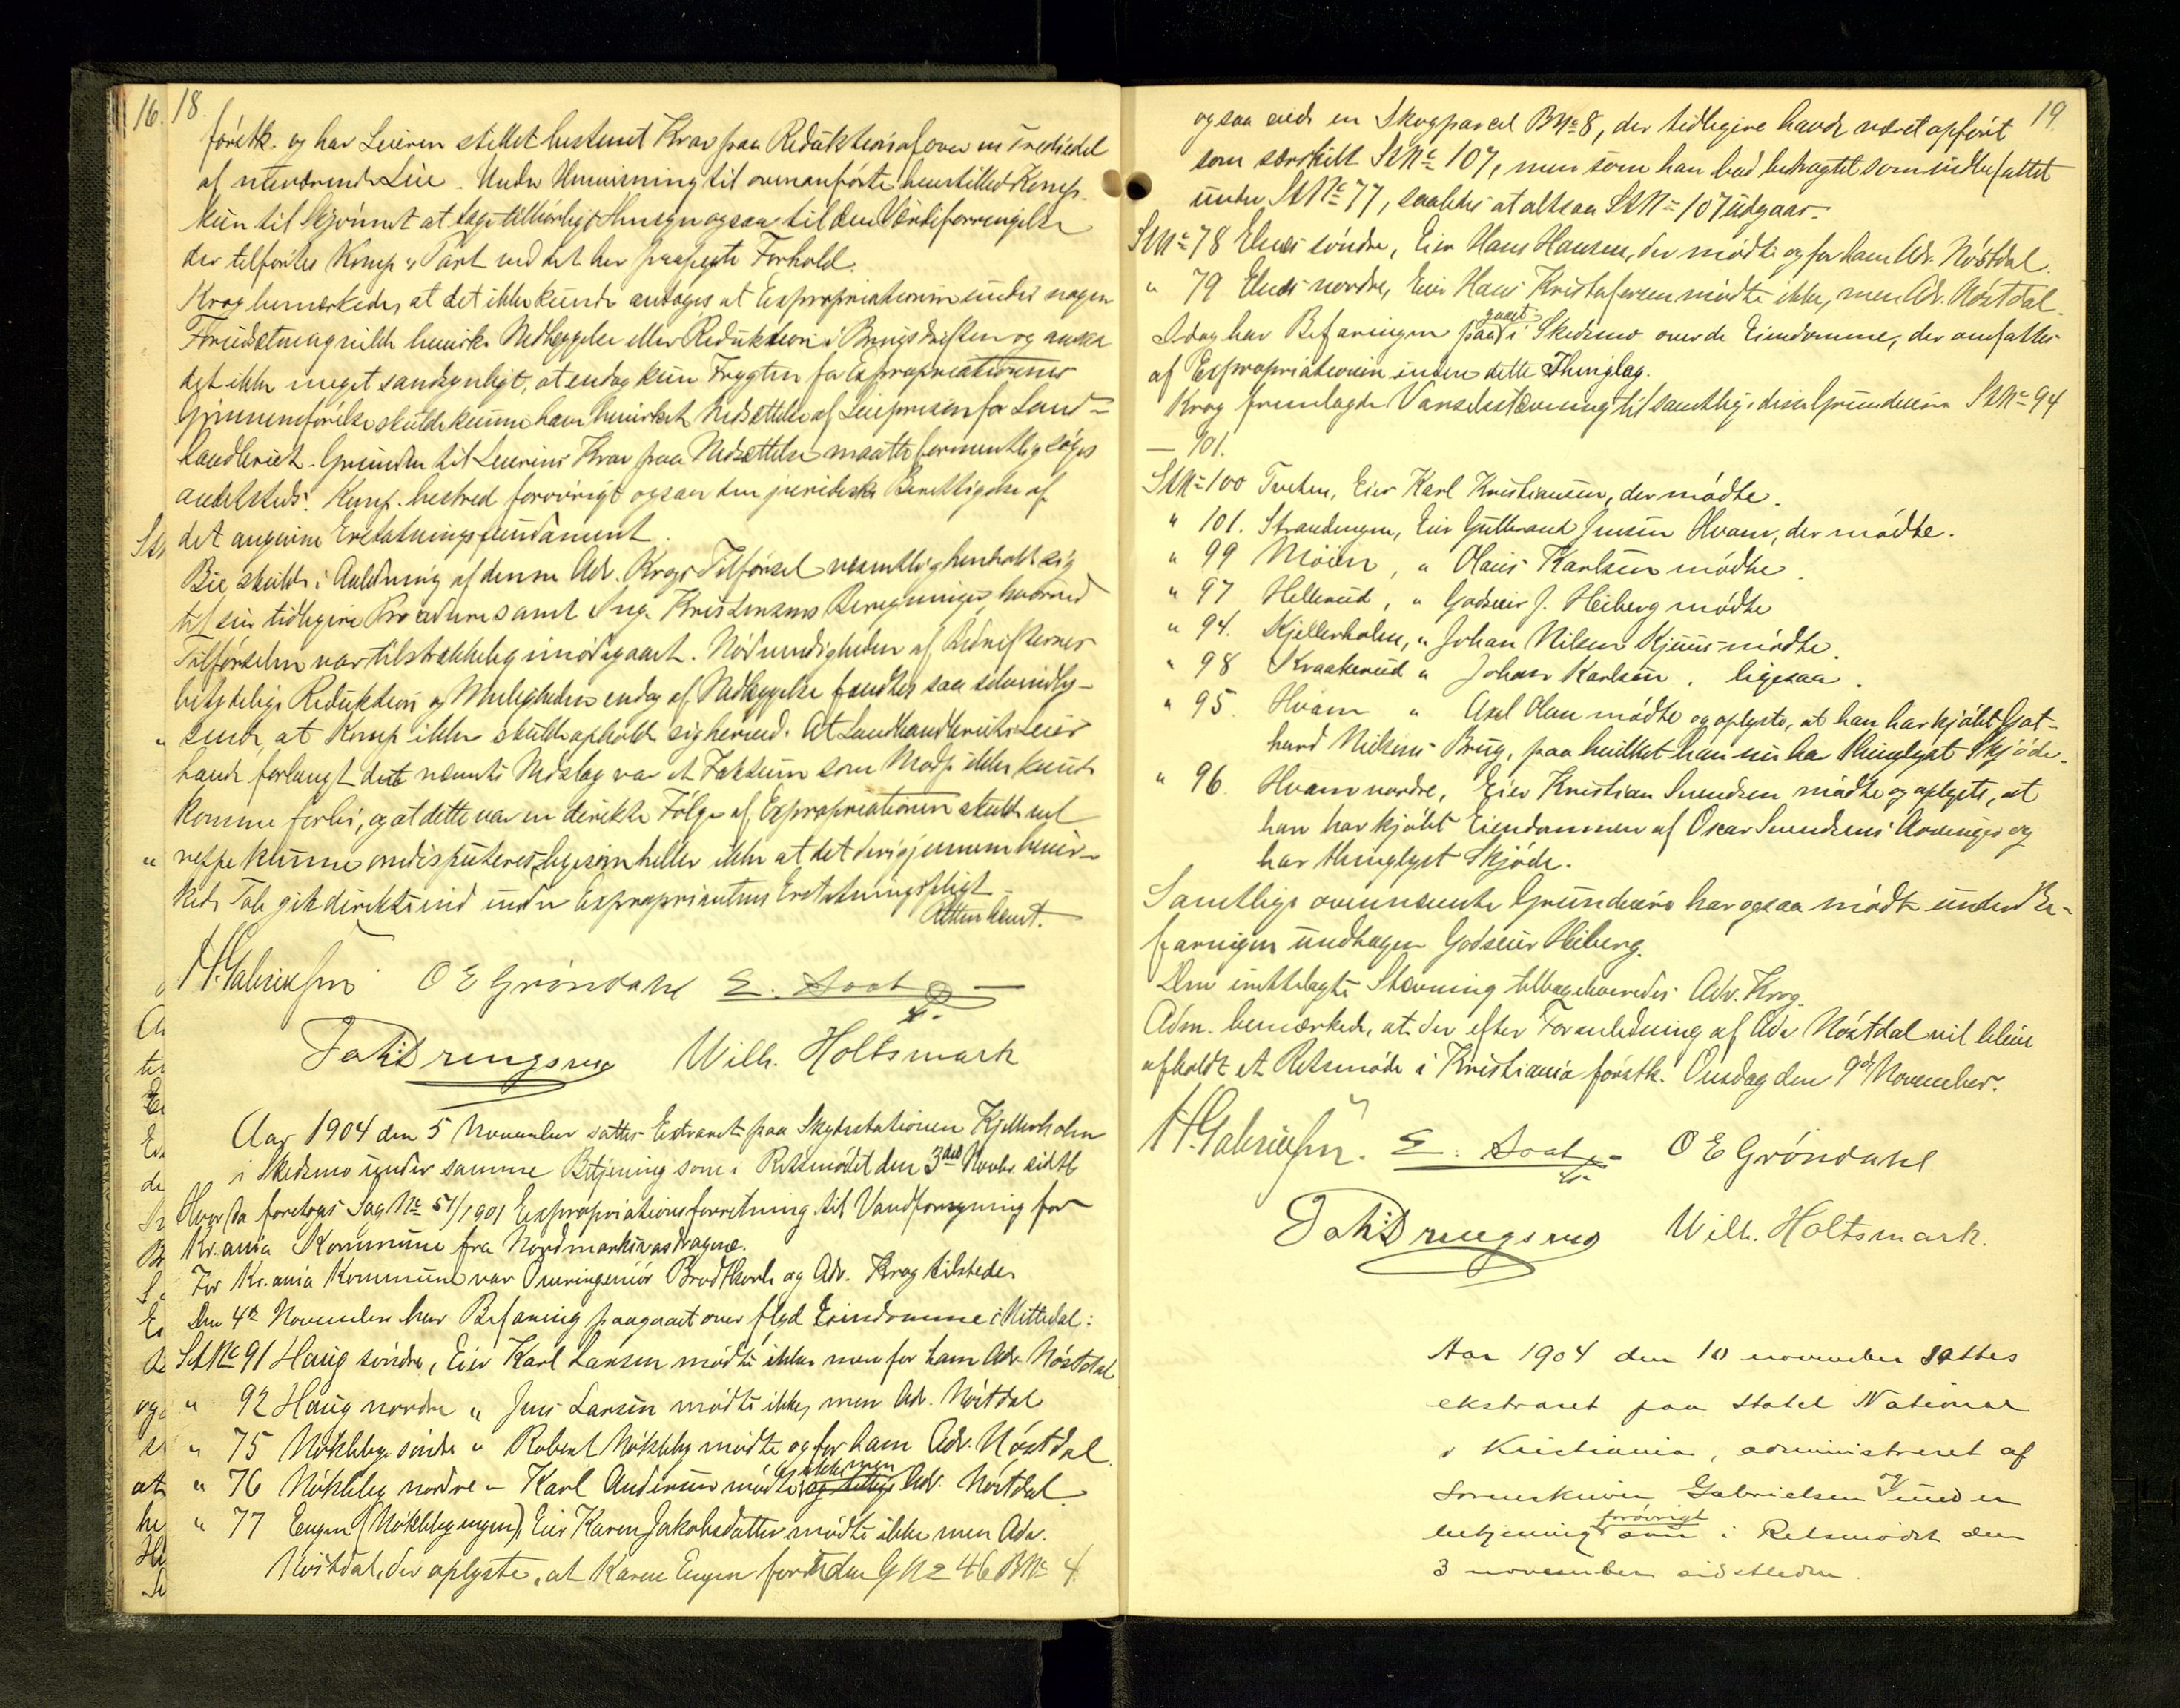 18.
førstk. og har Leieren stillet bestemt Krav paa Reduktion af over en Trediedel
af nuværende Leie. Under Henvisning til ovenanførte henstilled Komp.
kun til Skjønnet at tage tilbørligt Hensyn ogsaa til den Værdiforringelse
der tilførtes Komp.s Part ved det her paapegte Forhold.
Krog bemerkede, at det ikke kunde antages at Expropriationen under nogen
Forudsætning vilde bevirke Nedlæggelse eller Reduktion i Brugsdriften og ansaa
det ikke meget sandsynligt, at endog kun Frygten for Expropriationens
Gjennemførelse skulde kunne have bevirket Nedsættelse af Leieprisen for Land-
handleriet. Grunden til Leierens Krav paa Nedsættelse maatte formentlig søges
andetsteds. Komp. bestred forøvrigt ogsaa den juridiske Berettigelse af
det angivne Erstatningsfundament.
Bie skulde i Anledning af denne Adv. Krogs Tilførsel væsentlig henholde sig
til sin tidligere Procedure samt Ing. Kristensens Beregninger, hvorved
Tilførselen var tilstrækkelig imødegaaet. Nødvendigheden af Bedrifternes
betydelige Reduktion og Muligheden endog af Nedlæggelse fandtes saa selvindly-
sende, at Komp ikke skulde opholde sig herved. At Landhandleriets Leier
havde forlangt det nævnte Nedslag var et Faktum som Modp ikke kunde
komme forbi, og at dette var en direkte Følge af Expropriationen skulde vel
neppe kunne omdisputeres, ligesom heller ikke at det derigjennem bevir-
kede Tab gik direkte ind under Expropriantens Erstatningspligt.
Atter hævet.
H. Gabrielsen O E Gröndahl E. Soot
Wilh. Holtsmark
Aar 1904 den 5 November sattes Extraret paa Skydsstationen Kjellerholen
i Skedsmo under samme Betjening som i Retsmødet den 3die Novbr sidstl
Hvorda foretoges Sag No 51/1901 Expropriationsforretning til Vandforsyning for
Kr.ania Kommune fra Nordmarksvasdragene.
For Kr.ania Kommune var Overingeniør Brodtkorb og Adv. Krog tilstede.
Den 4de November har Befaring paagaaet over flgd Eiendomme i Nittedal:
St No 91 Haug søndre, Eier Karl Larsen mødte ikke men for ham Adv. Nøstdal
" 92 Haug nordre " Jens Larsen mødte ikke, men Adv. Nøstdal
" 75 Nøkleby søndre " Robert Nøkleby mødte og for ham Adv. Nøstdal.
" 76 Nøkleby nordre - Karl Andersen mødte ikke men og tillige Adv. Nøstdal.
" 77 Engen (Nøklebyengen), Eier Karen Jakobsdatter mødte ikke men Adv.
Nøstdal, der oplyste, at Karen Engen foruden G No 46 B No 4.
19.
ogsaa eiede en Skogparcel B No 8, der tidligere havde været opført
som særskilt St No 107, men som han bad betragtet som indbefattet
under St No 77, saaledes at altsaa St No 107 udgaar.
St No 78 Elnes søndre, Eier Hans Hansen, der mødte og for ham Adv. Nøstdal.
" 79 Elnes nordre, Eier Hans Kristofersen mødte ikke, men Adv. Nøstdal.
Idag har Befaringen paagaaet i Skedsmo over de Eiendomme, der omfattes
af Expropriationen inden dette Thinglag.
Krog fremlagde Varselsstævning til samtlige disse Grundeiere St No 94
— 101.
St No 100 Tveten, Eier Karl Kristiansen, der mødte.
" 101. Strandengen, Eier Gulbrand Jensen Hvam, der mødte.
" 99 Moien, " Olaus Karlsen mødte.
" 97 Hellerud, " Godseier J. Heiberg mødte
" 94. Kjellerholen, " Johan Nilsen Kjuus mødte.
" 98 Kraakerud " Johan Karlsen, ligesaa.
" 95. Hvam " Axel Olsen mødte og oplyste, at han har kjøbt Got-
hard Nielsens Brug, paa hvilket han nu har thinglyst Skjøde.
" 96. Hvam nordre, Eier Kristian Svendsen mødte og oplyste, at
han har kjøbt Eiendommen af Oscar Svendsens Arvinger og
har thinglyst Skjøde.
Samtlige ovennævnte Grundeiere har ogsaa mødt under Be-
faringen undtagen Godseier Heiberg.
Den irettelagte Stævning tilbageleveredes Adv. Krog.
Adm. bemærkede, at der efter Foranledning af Adv Nøstdal vil blive
afholdt et Retsmøde i Kristiania førstk. Onsdag den 9de November.
H. Gabrielsen. E. Soot O E Gröndahl
Wilh. Holtsmark.
Aar 1904 den 10 november sattes
ekstraret paa Hotel National
i Kristiania, administreret af
Sorenskriver Gabrielsen
betjening forøvrigt som i Retsmødet den
3 november sidstleden.